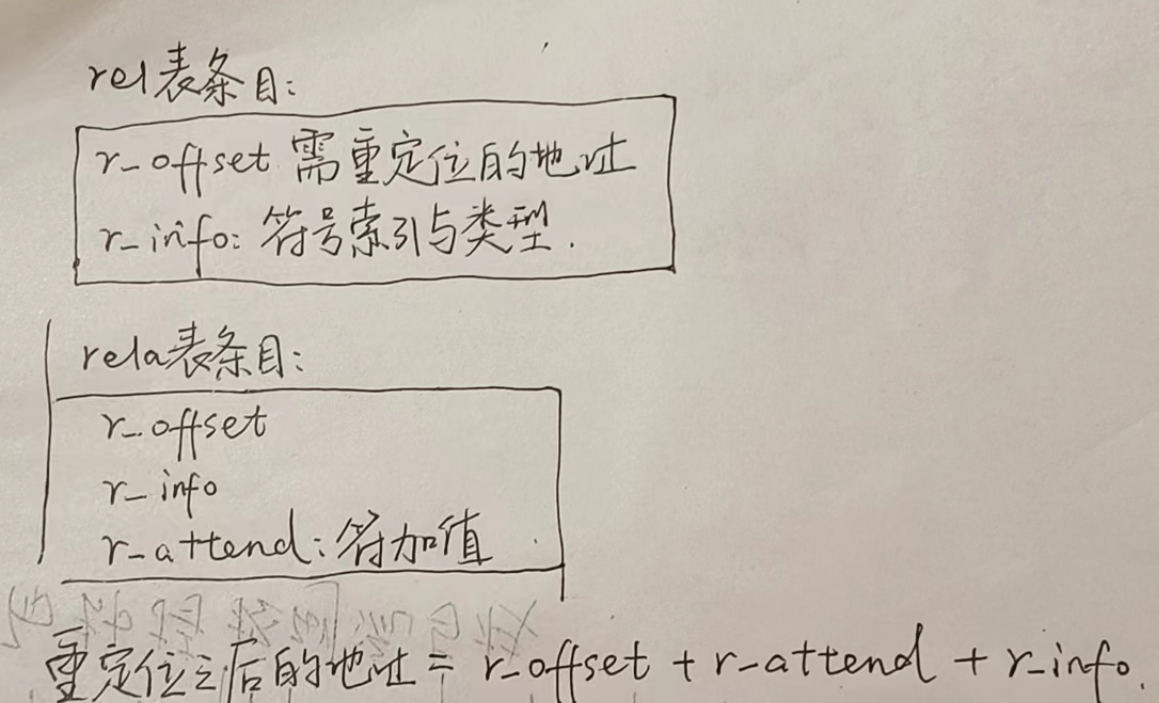 rel表条目:
r_offset 需重定位的地址
r_info: 符号索引与类型.
rela表条目:
r_offset
r_info
r_attend: 符加值
重定位之后的地址 = r_offset + r_attend + r_info.